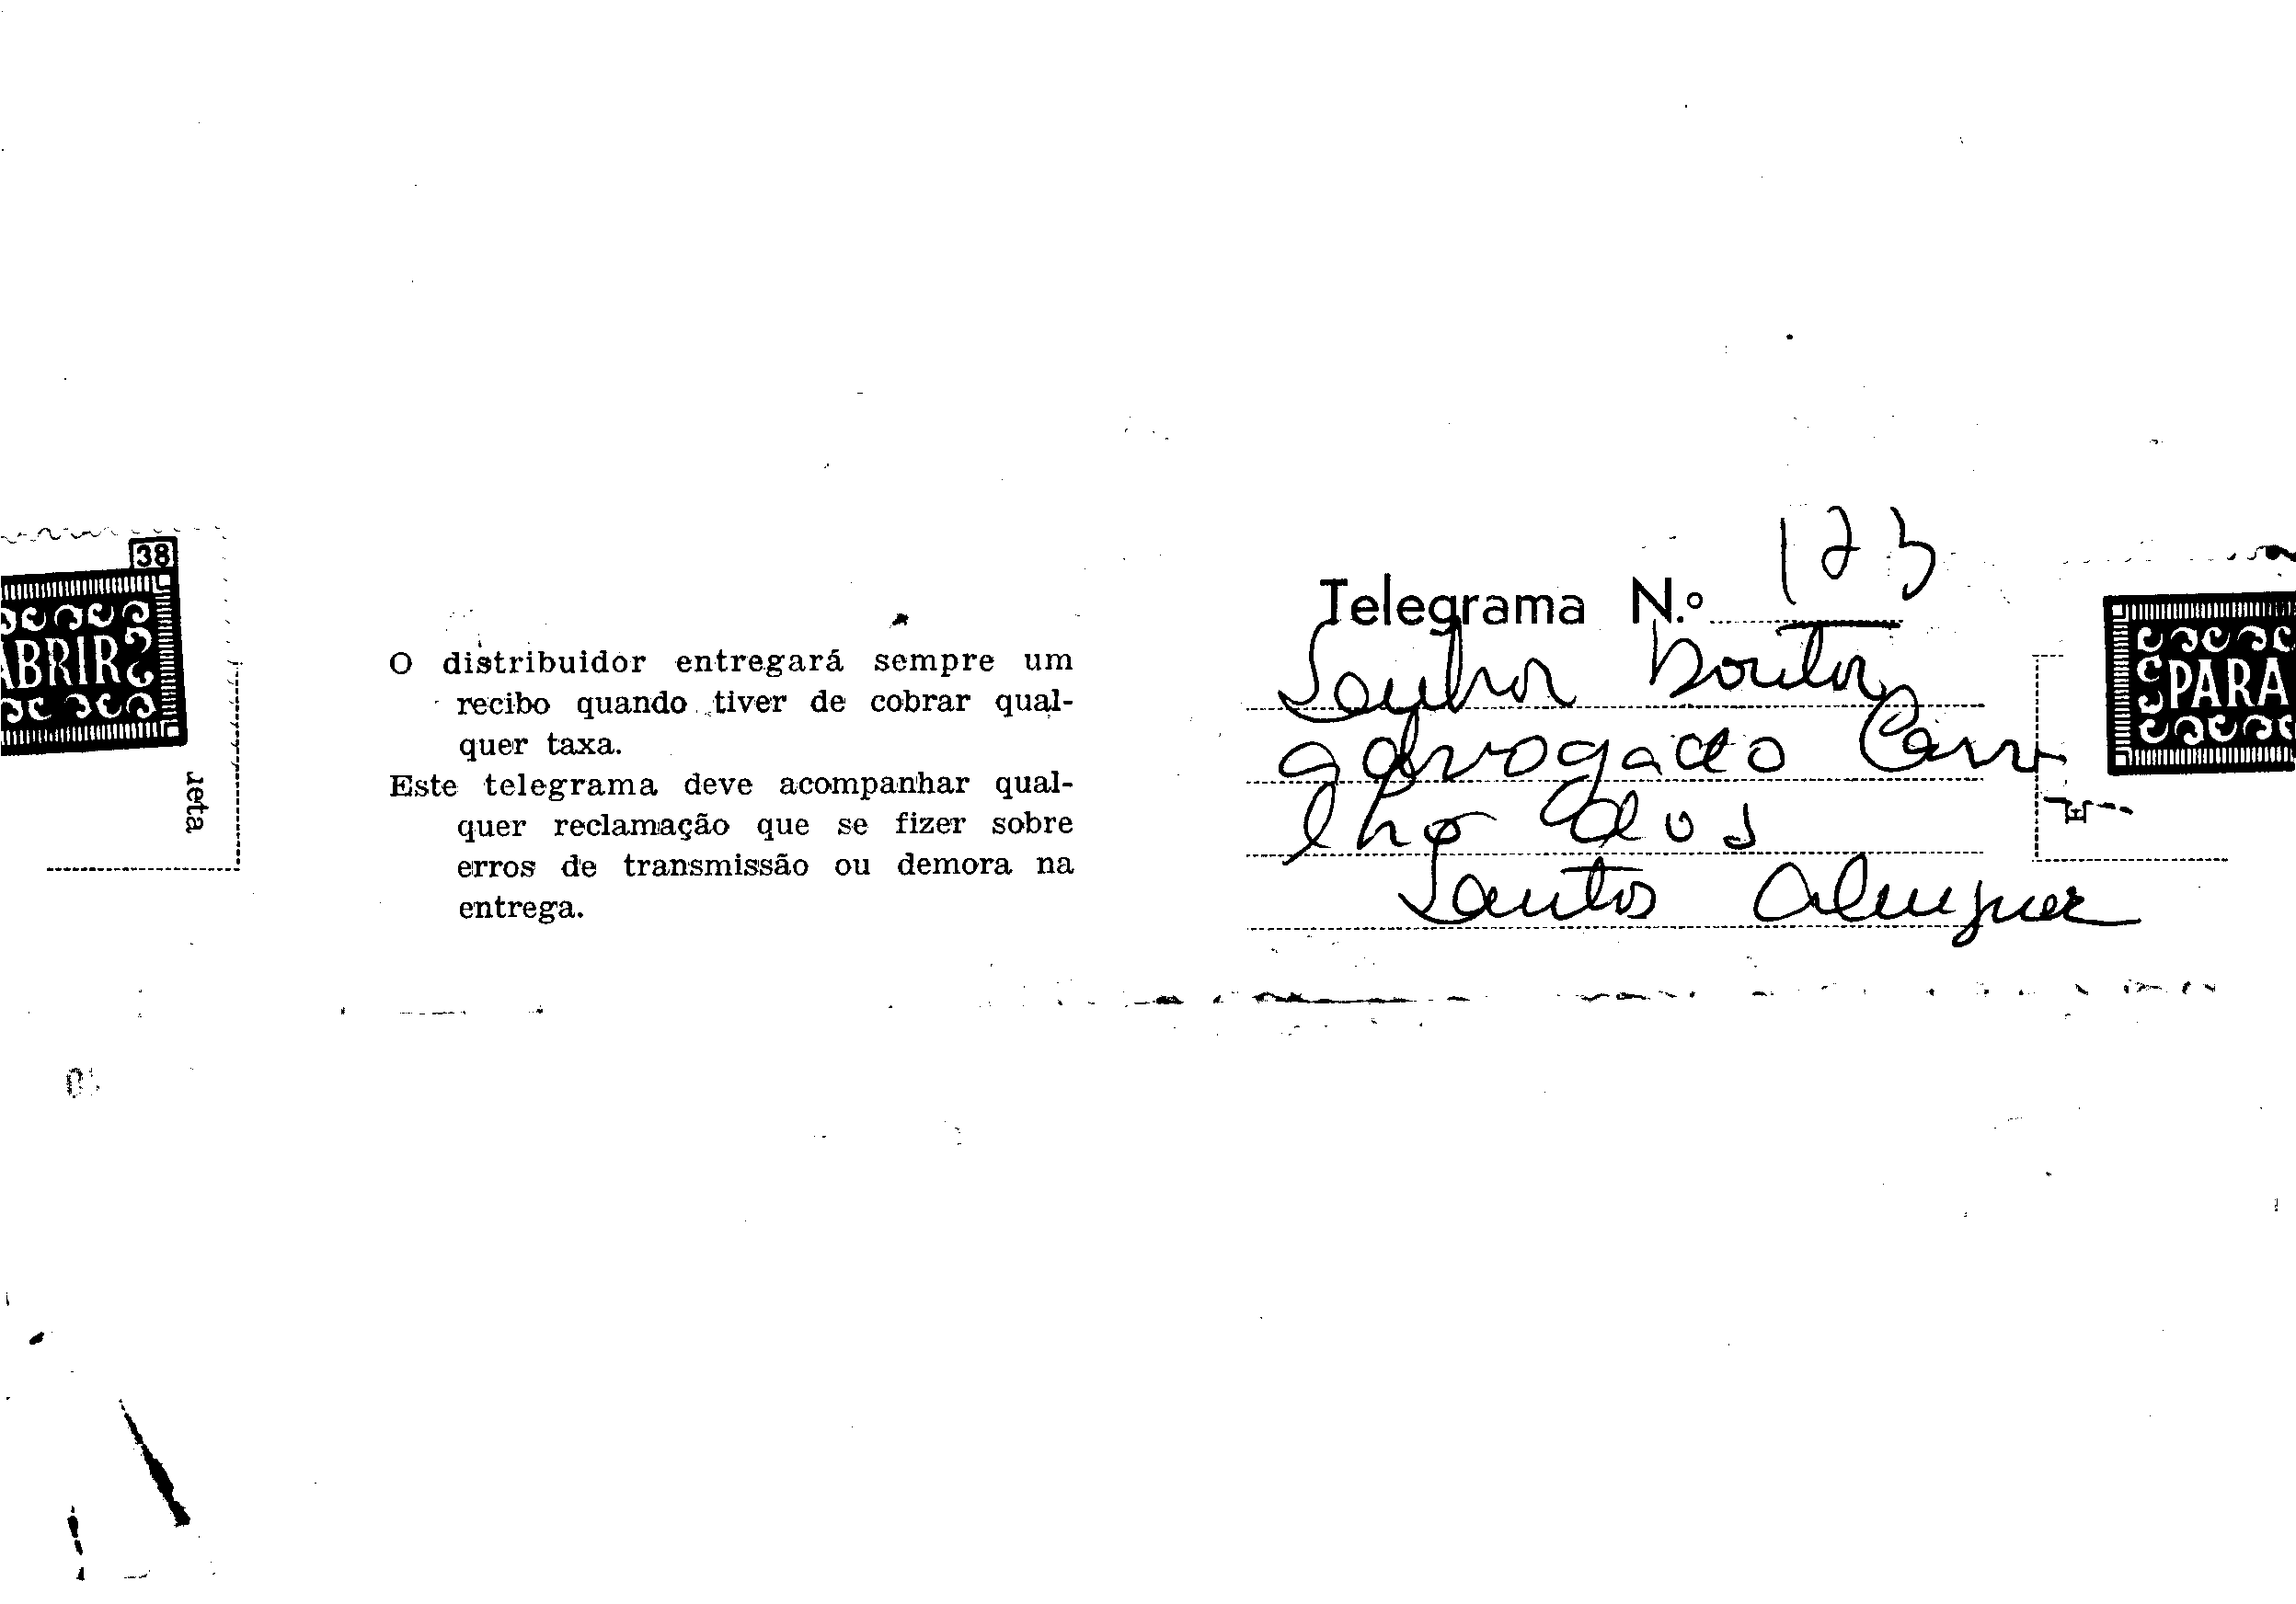 38
ABRIR
reta
O distribuidor entregará sempre um
recibo quando tiver de cobrar qual-
quer taxa.
Este telegrama deve acompanhar qual-
quer reclamação que se fizer sobre
erros de transmissão ou demora na
entrega.
Telegrama N.º 173
Senhor Doutor
advogado Carva
lho dos
Santos Alenquer
PARA